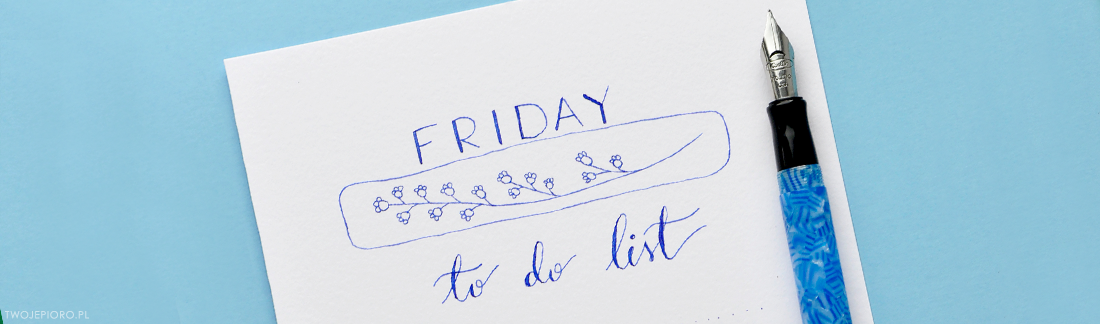 FRIDAY
to do list
TWOJEPIORO.PL